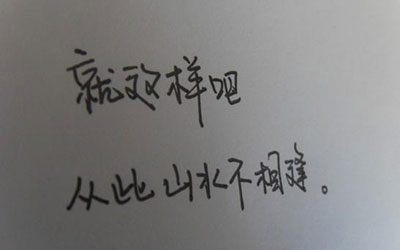 就这样吧
从此山水不相逢。